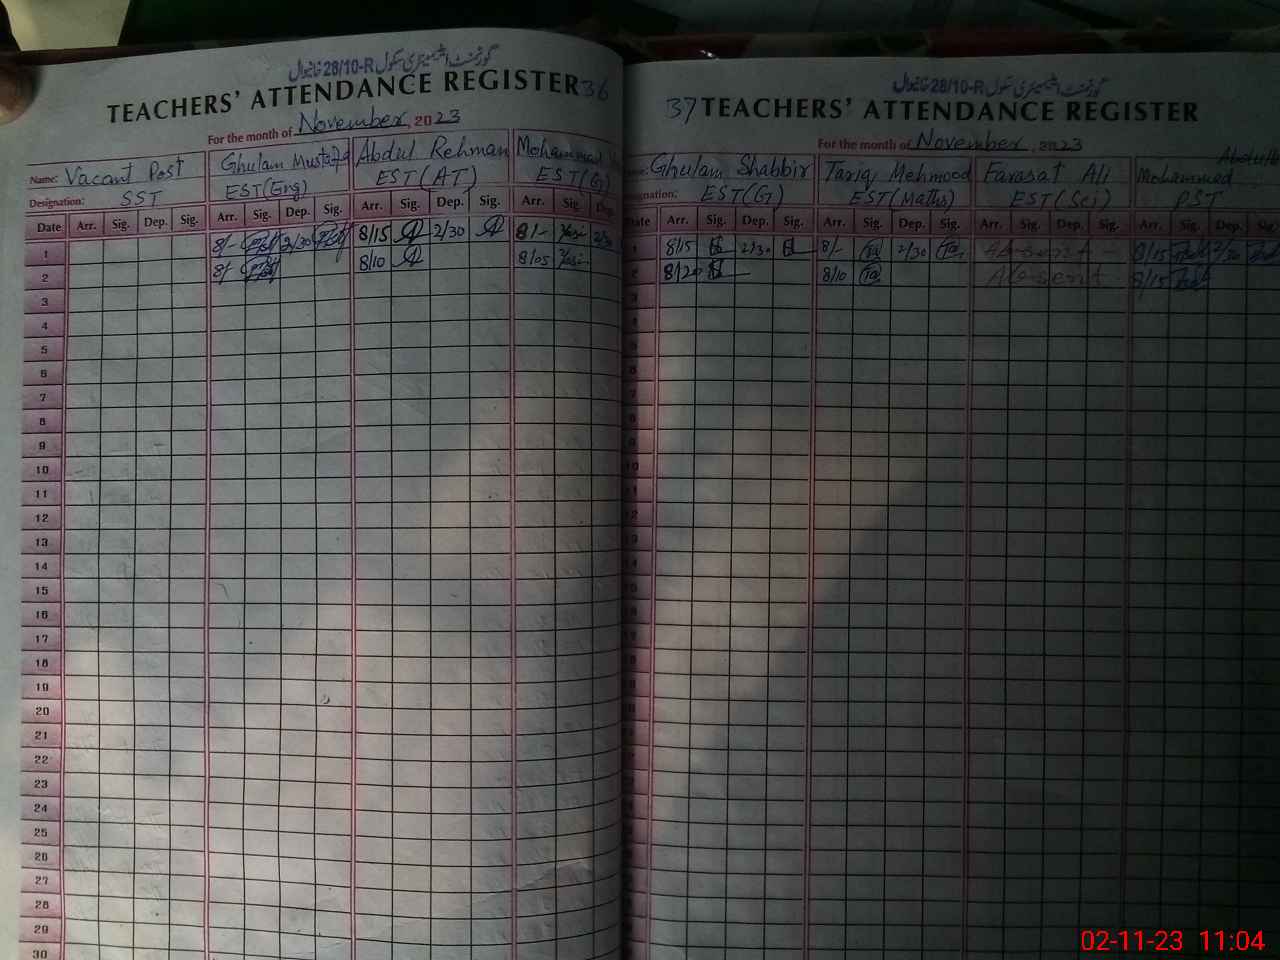 گورنمنٹ ایلیمنٹری سکول 28/10-R خانیوال
TEACHERS' ATTENDANCE REGISTER 36
For the month of November, 2023
Name: Vacant Post Ghulam Mustafa Abdul Rehman Mohammad
Designation: SST EST(Eng) EST(AT) EST(G)
Date Arr. Sig. Dep. Sig. Arr. Sig. Dep. Sig. Arr. Sig. Dep. Sig. Arr. Sig. Dep.
1 8/- 2/30 8/15 2/30 8/- 2/30
2 8/- 8/10 8/05
3
4
5
6
7
8
9
10
11
12
13
14
15
16
17
18
19
20
21
22
23
24
25
26
27
28
29
30
گورنمنٹ ایلیمنٹری سکول 28/10-R خانیوال
37 TEACHERS' ATTENDANCE REGISTER
For the month of November, 2023
Ghulam Shabbir Tariq Mehmood Farasat Ali Mohammad Abdull
EST(G) EST(Maths) EST(Sci) PST
Date Arr. Sig. Dep. Sig. Arr. Sig. Dep. Sig. Arr. Sig. Dep. Sig. Arr. Sig. Dep. Sig.
1 8/15 2/30 8/- 2/30 Absent 8/15 2/30
2 8/20 8/10 Absent 8/15
02-11-23 11:04